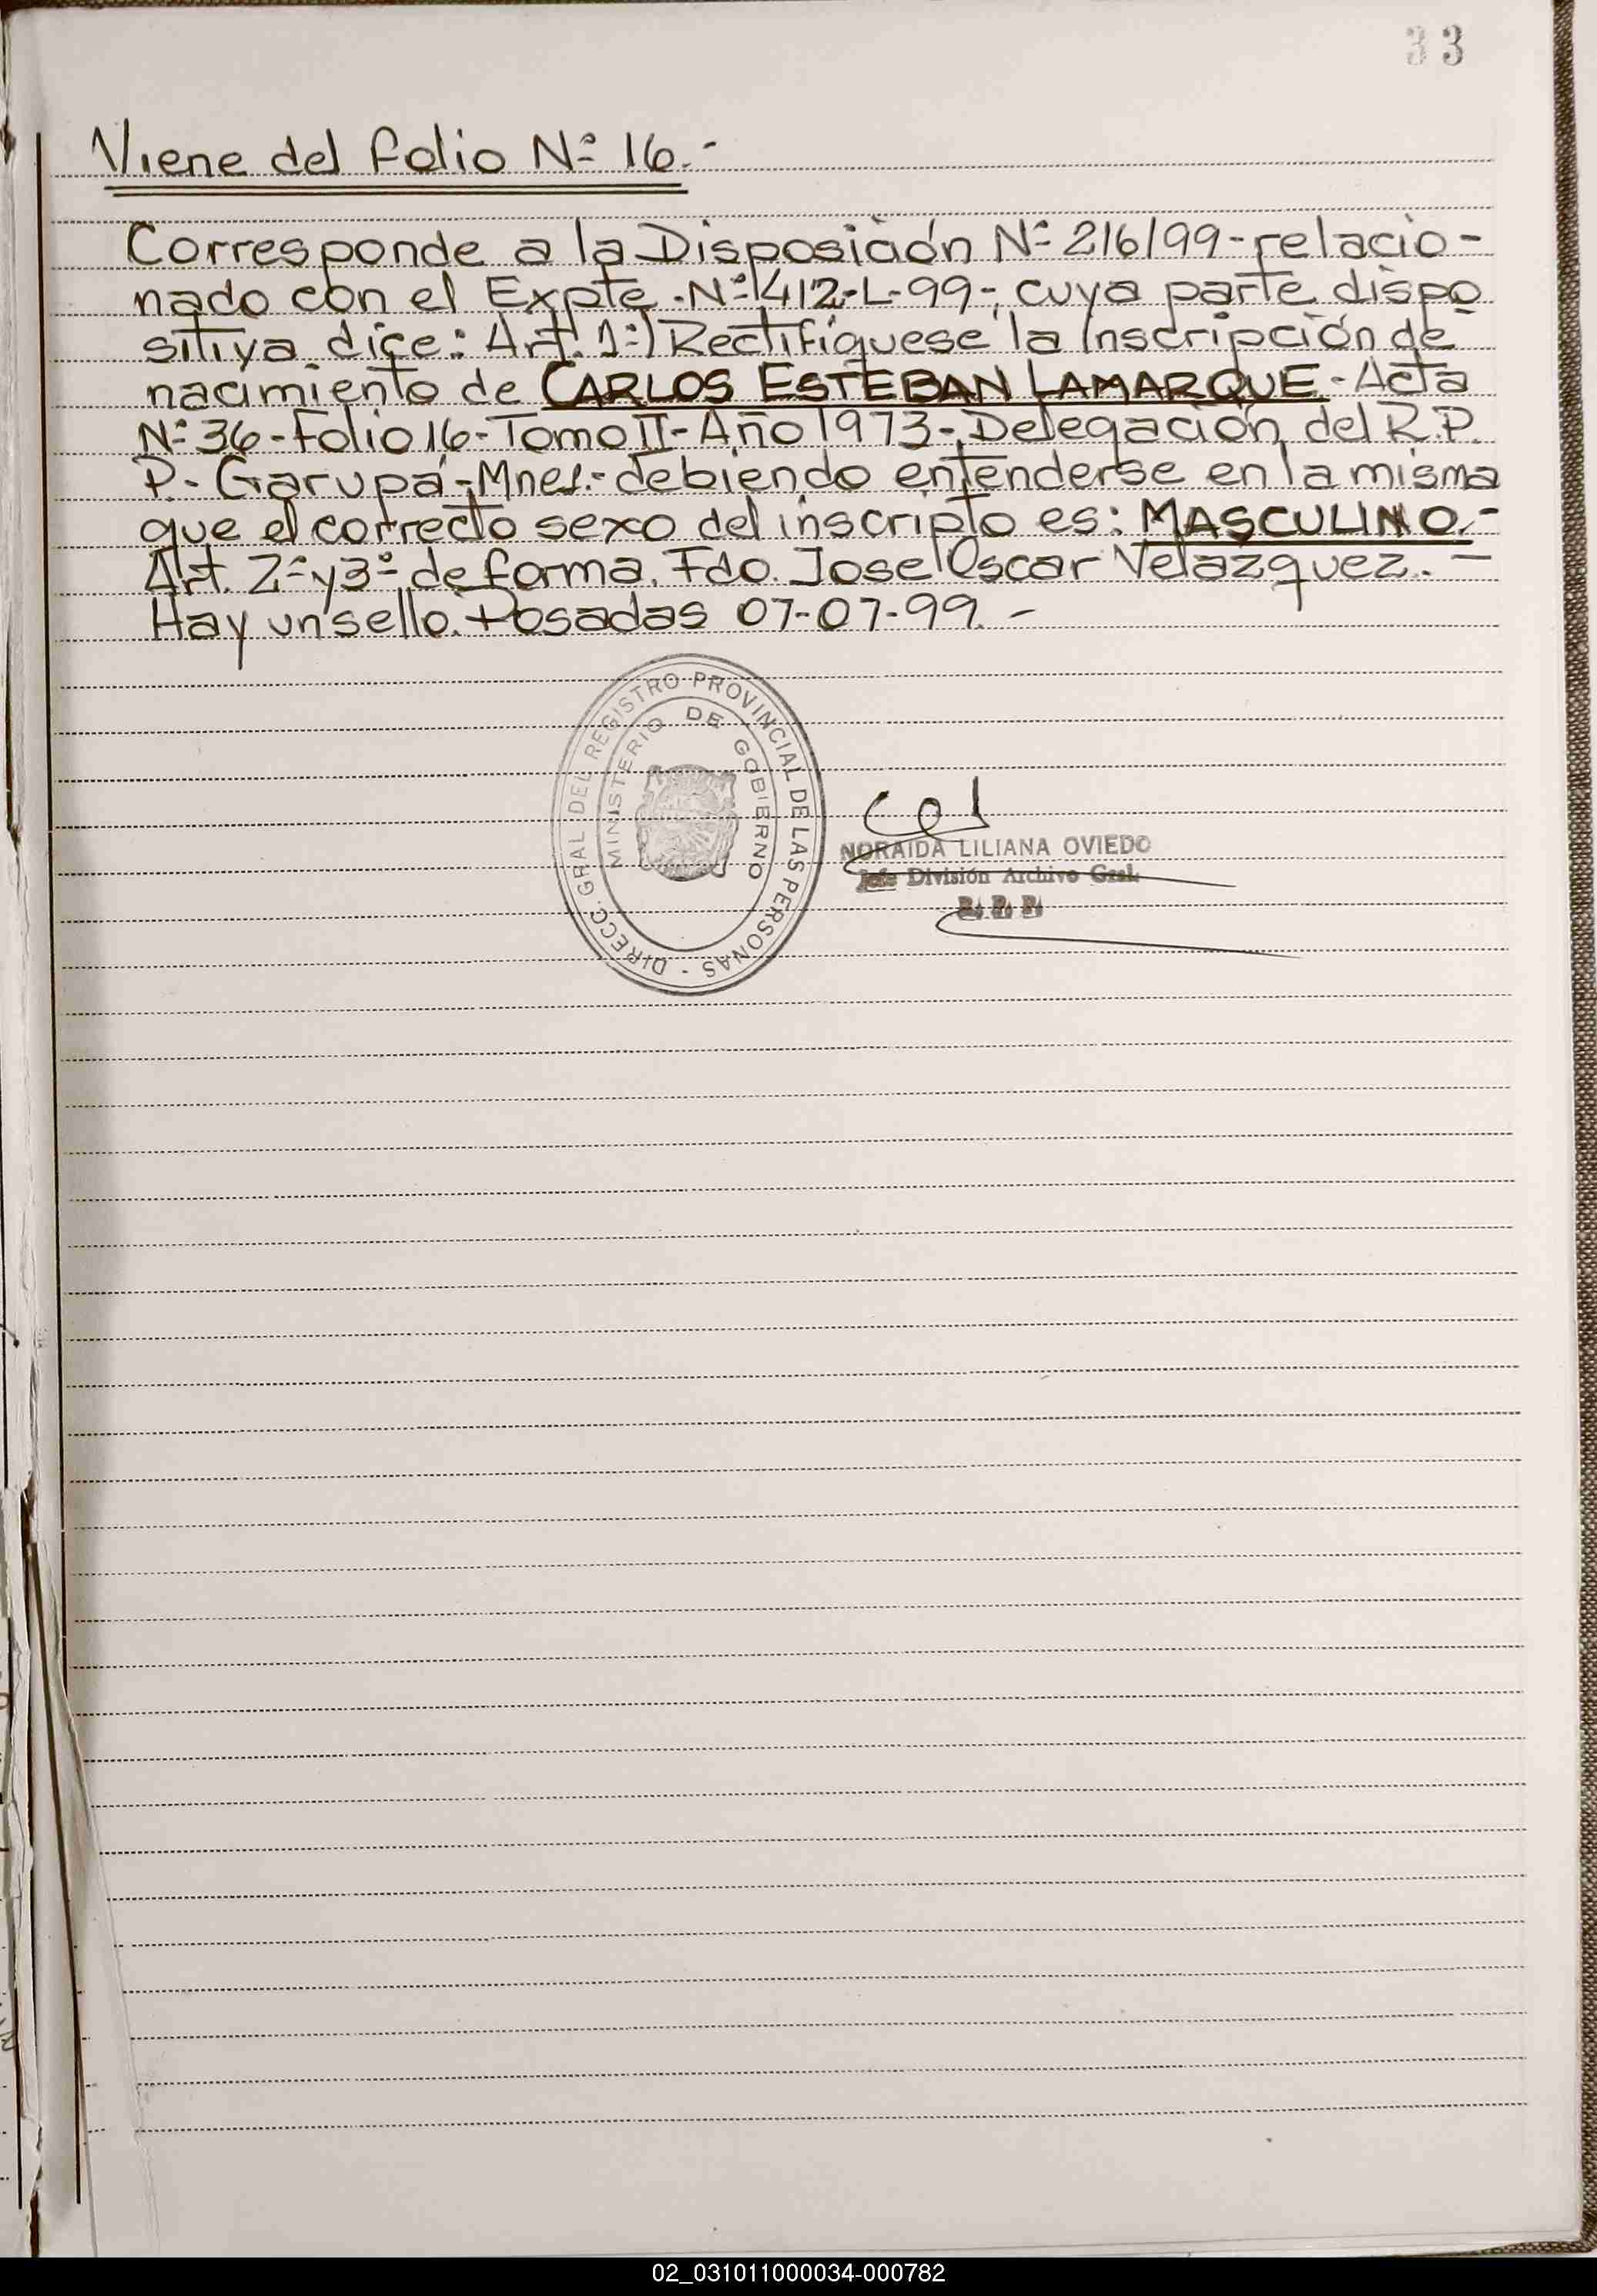 33
Viene del folio Nº 16.-
Corresponde a la Disposición Nº 216/99-relacio-
nado con el Expte.Nº1412-L-99-, cuya parte dispo
sitiva dice: Art. 1º) Rectifíquese la Inscripción de
nacimiento de CARLOS ESTEBAN LAMARQUE-Acta
Nº 36-Folio 16-Tomo II-Año 1973-Delegación del R.P.
P.-Garupá-Mnes.-debiendo entenderse en la misma
que el correcto sexo del inscripto es: MASCULINO.-
Art. 2º y 3º de forma. Fdo. Jose Oscar Velazquez.-
Hay un sello. Posadas 07-07-99.-
DIRECC. GRAL DEL REGISTRO PROVINCIAL DE LAS PERSONAS -
MINISTERIO DE GOBIERNO
NORAIDA LILIANA OVIEDO
Jefe División Archivo Gral.
R. P. P.
02_031011000034-000782